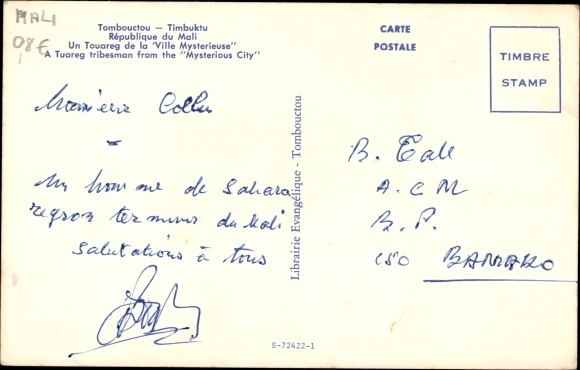 MALI
08 €
Tombouctou — Timbuktu
République du Mali
Un Touareg de la "Ville Mysterieuse"
A Tuareg tribesman from the "Mysterious City"
CARTE
POSTALE
TIMBRE
STAMP
Monsieur
Un homme de Sahara
du Mali
Salutations à tous
Librairie Evangélique - Tombouctou
B. Tall
A. C M
B. P.
150 BAMAKO
S-72422-1